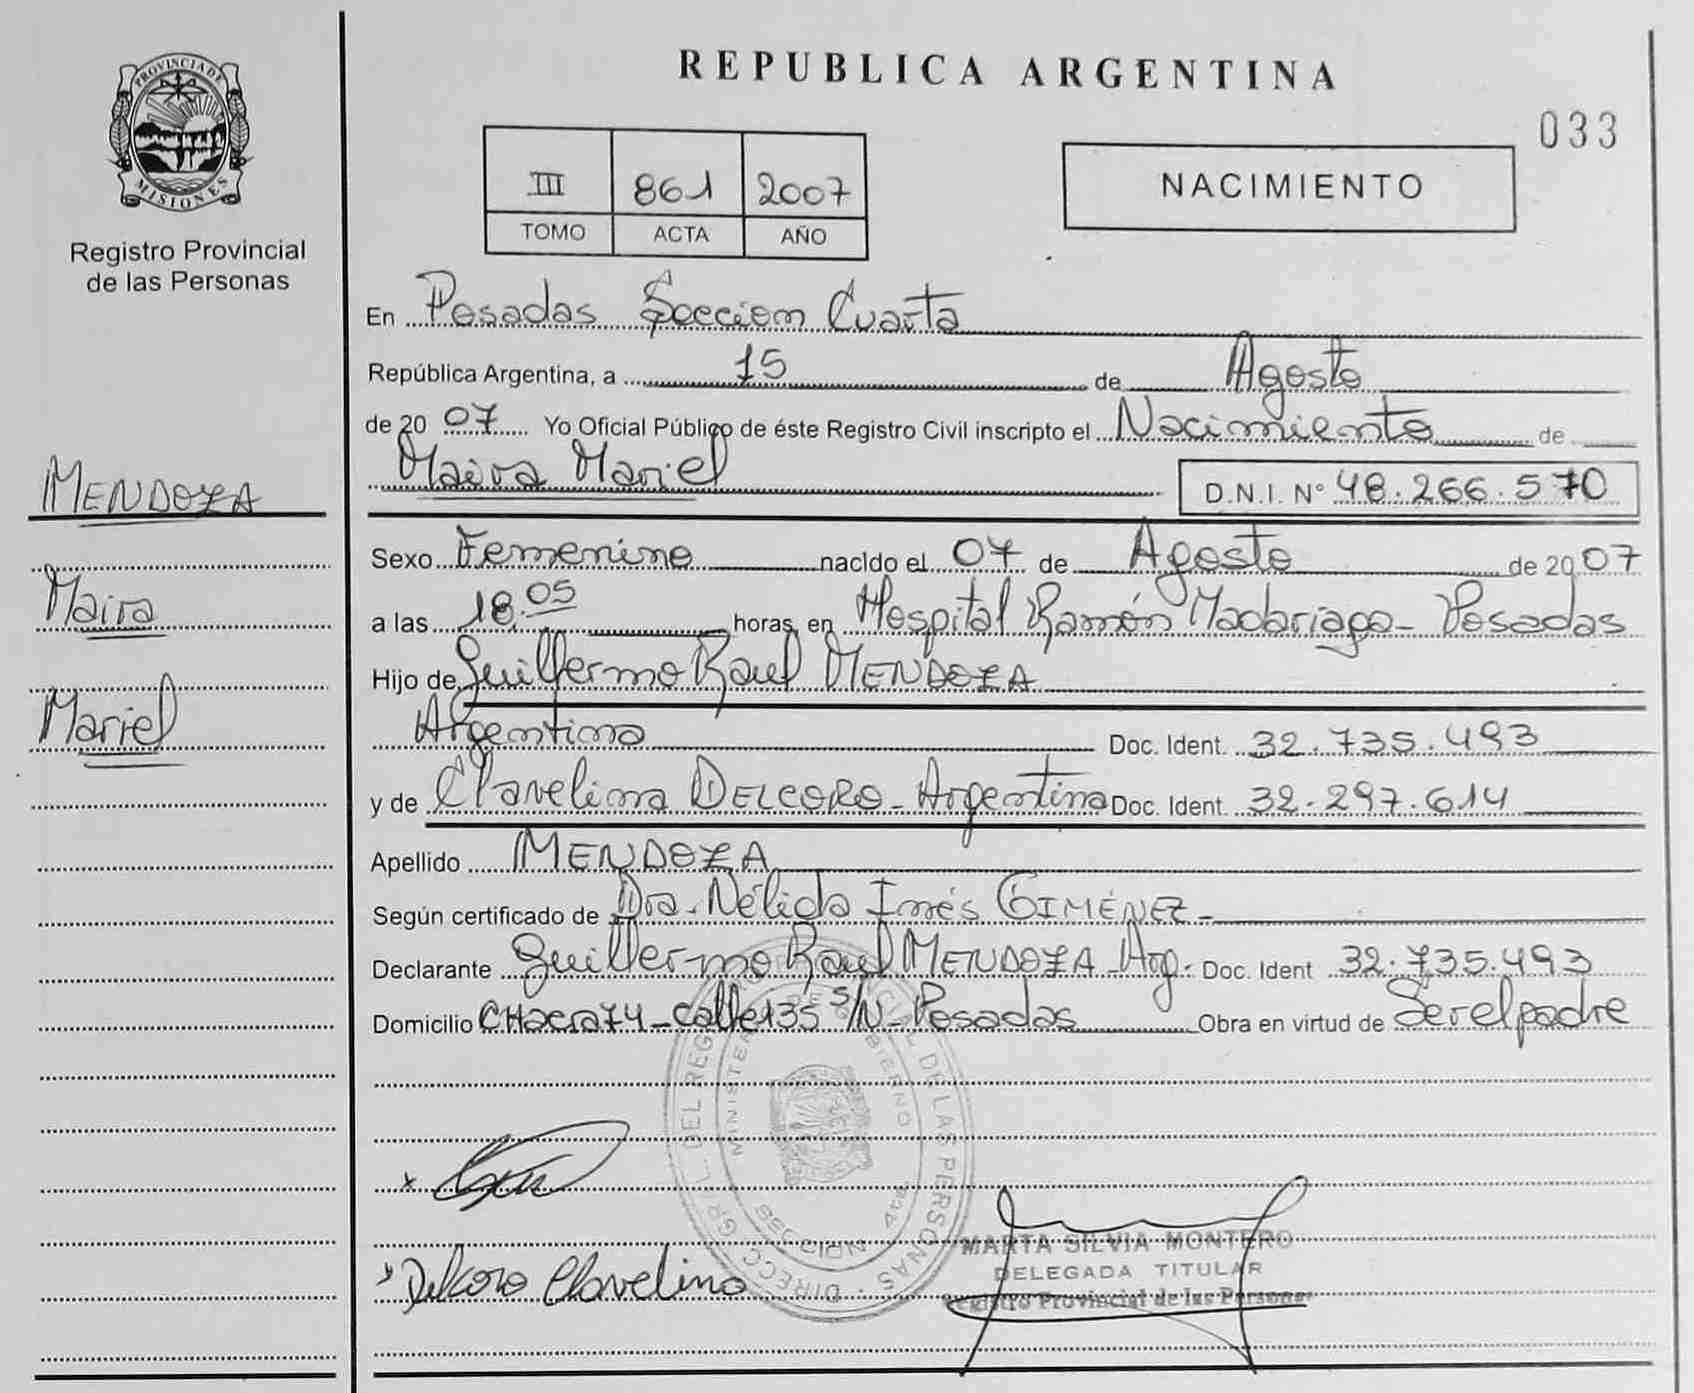 REPUBLICA ARGENTINA
033
PROVINCIA DE
MISIONES
Registro Provincial
de las Personas
III 861 2007
TOMO ACTA AÑO
NACIMIENTO
En Posadas Seccion Cuarta
República Argentina, a 15 de Agosto
de 2007 Yo Oficial Público de éste Registro Civil inscripto el Nacimiento de
Maira Mariel D.N.I. N° 48.266.570
MENDOZA
Maira
Mariel
Sexo Femenino nacido el 07 de Agosto de 2007
a las 18.05 horas, en Hospital Ramón Madariaga - Posadas
Hijo de Guillermo Raul MENDOZA
Argentino Doc. Ident. 32.735.493
y de Clavelina DELCORO - Argentina Doc. Ident. 32.297.614
Apellido MENDOZA
Según certificado de Dra. Nélida Inés GIMÉNEZ -
Declarante Guillermo Raul MENDOZA - Arg. Doc. Ident 32.735.493
Domicilio CHacra 74 - calle 135 S/N - Posadas Obra en virtud de Ser el padre
Delcoro Clavelina
MARTA SILVIA MONTERO
DELEGADA TITULAR
Registro Provincial de las Personas